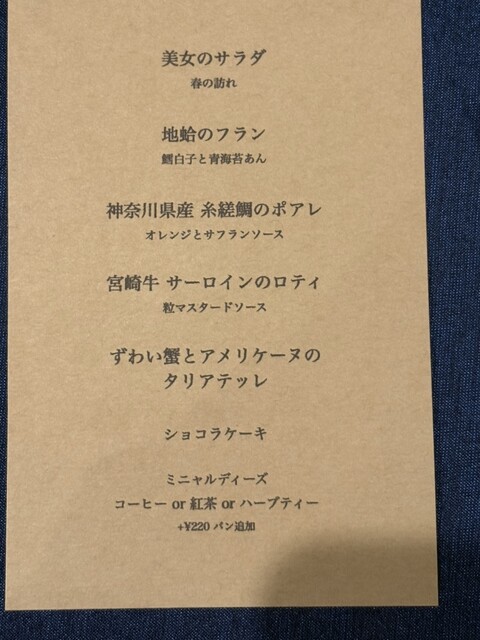 美女のサラダ
春の訪れ
地蛤のフラン
鱈白子と青海苔あん
神奈川県産 糸縒鯛のポアレ
オレンジとサフランソース
宮崎牛 サーロインのロティ
粒マスタードソース
ずわい蟹とアメリケーヌの
タリアテッレ
ショコラケーキ
ミニャルディーズ
コーヒー or 紅茶 or ハーブティー
+¥220 パン追加